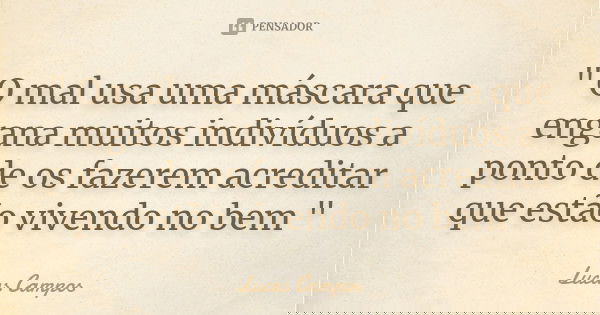 PENSADOR
"O mal usa uma máscara que
engana muitos indivíduos a
ponto de os fazerem acreditar
que estão vivendo no bem "
Lucas Campos